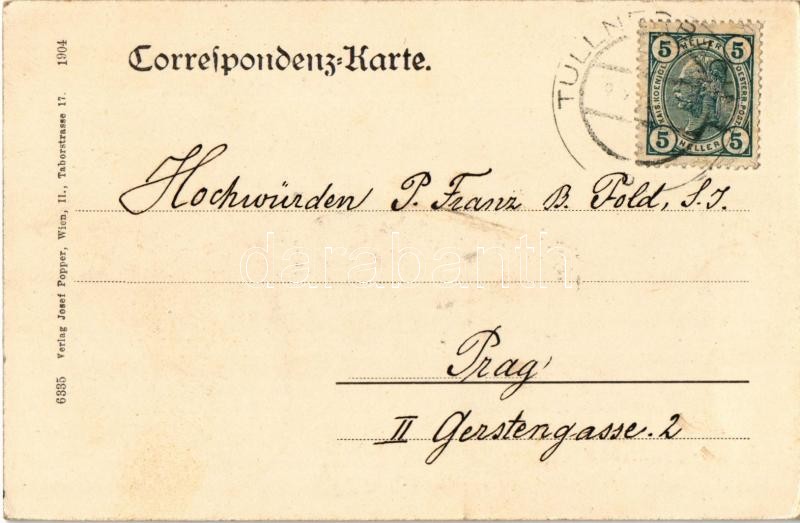 Correspondenz-Karte.
TULLNER
5 HELLER 5
KAIS. KOENIGL. OESTERR. POST
5 HELLER 5
Hochwürden P. Franz B. Pold, S.J.
darabanth
Prag
II Gerstengasse. 2
6335 Verlag Josef Popper, Wien, II., Taborstrasse 17. 1904